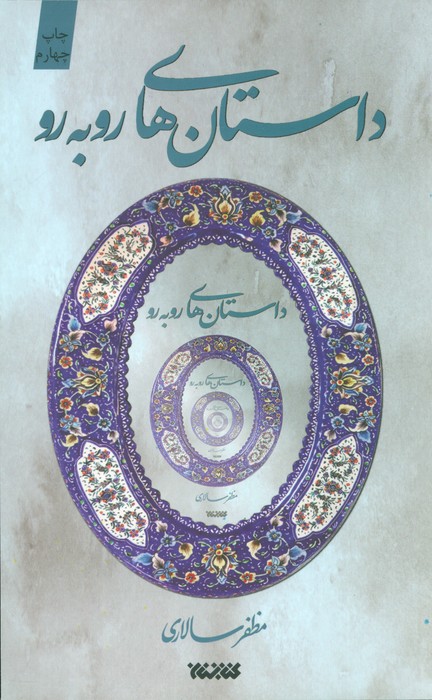 چاپ
چهارم
داستان‌های روبه‌رو
داستان‌های روبه‌رو
داستان‌های روبه‌رو
مظفر سالاری
مظفر سالاری